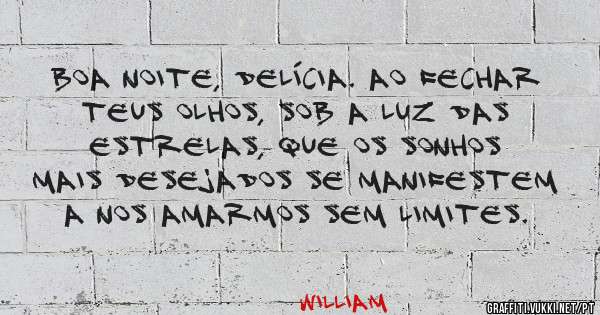 BOA NOITE, DELÍCIA. AO FECHAR
TEUS OLHOS, SOB A LUZ DAS
ESTRELAS, QUE OS SONHOS
MAIS DESEJADOS SE MANIFESTEM
A NOS AMARMOS SEM LIMITES.
WILLIAM
GRAFFITI.VUKKI.NET/PT